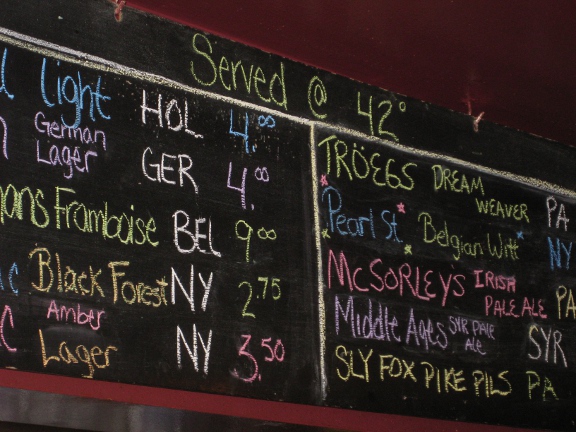 Served @ 42°
light HOL 4.00
German Lager GER 4.00
Framboise BEL 9.00
Black Forest NY 2.75
Amber Lager NY 3.50
TRÖEGS DREAM WEAVER PA
Pearl St. Belgian Witt NY
McSORLEYS IRISH PALE ALE PA
Middle Ages SYR PALE Ale SYR
SLY FOX PIKE PILS PA